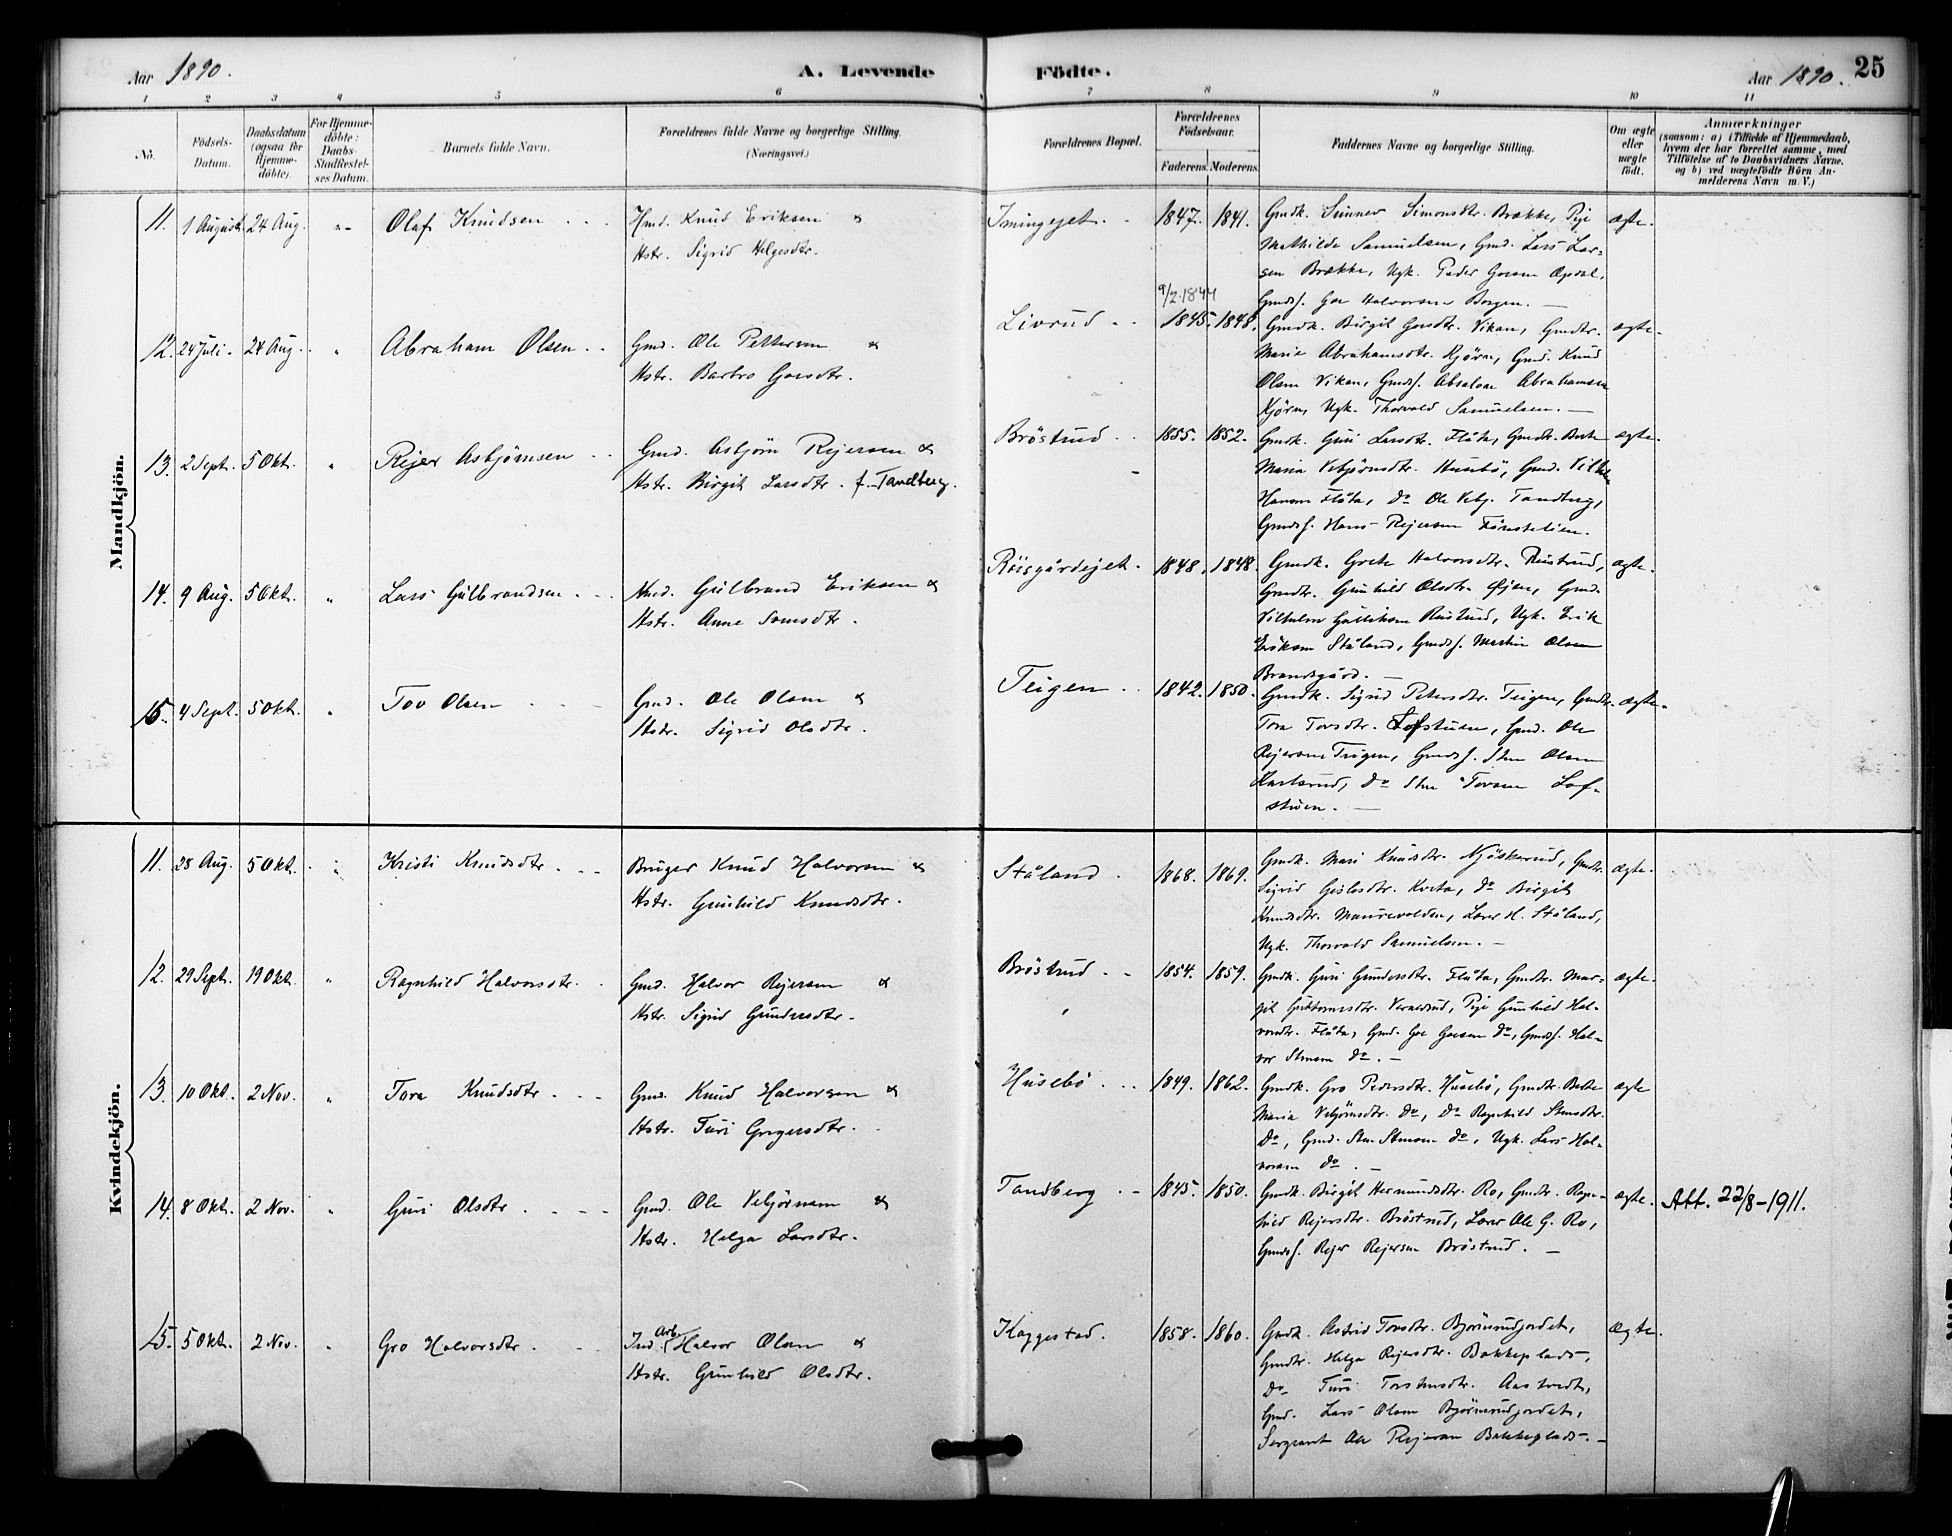 Aar 1890. A. Levende Födte. Aar 1890. 25
1 2 3 4 5 6 7 8 9 10 11
No. Födsels-Datum. Daabsdatum (ogsaa for Hjemme-döbte). For Hjemme-döbte: Daabs-Stadfæstel-ses Datum. Barnets fulde Navn. Forældrenes fulde Navne og borgerlige Stilling. (Næringsvei.) Forældrenes Bopæl. Forældrenes Födselsaar. Faderens. Moderens. Faddernes Navne og borgerlige Stilling. Om ægte eller uægte födt. Anmærkninger (saasom: a) i Tilfælde af Hjemmedaab, hvem der har forrettet samme, med Tilföielse af to Daabsvidners Navne, og b) ved uægtefödte Börn An-melderens Navn m. V.)
Mandkjön.
11. 1 August. 24 Aug. " Olaf Knudsen Hmd. Knud Eriksen &
Hstr. Sigrid Helgesdtr.
Imingejet. 1847. 1841. Gmdk. Sünnev Simonsdtr. Brække, Pige ægte.
Mathilde Samuelsen, Gmd. Lars Lar-
sen Brække, Ugk. Peder Goesen Opdal,
Gmdsf. Goe Halvorsen Borgen.
12. 24 Juli. 24 Aug. " Abraham Olsen Gmd. Ole Pettersen &
Hstr. Barbro Goesdtr.
9/2.1844
Livrud 1845. 1848. Gmdk. Birgit Goesdtr. Vikan, Gmdtr. ægte.
Marie Abrahamsdtr. Kjörn, Gmd. Knud
Olsen Vikan, Gmdsf. Absalon Abrahamsen
Kjörn, Ugk. Thorvald Samuelsen.
13. 2 Sept. 5 Okt. " Rejer Asbjörnsen Gmd. Asbjörn Rejersen &
Hstr. Birgit Larsdtr. f. Tandberg.
Bröstrud 1855. 1852. Gmdk. Guri Larsdtr. Flåta, Gmdtr. Berte ægte.
Maria Vebjörnsdtr. Husebö, Gmd.
Hansen Flåta, Do Ole Vebj. Tandberg,
Gmdsf. Hans Rejersen
14. 9 Aug. 5 Okt. " Lars Gulbrandsen Hmd. Gulbrand Eriksen &
Hstr. Anne
Röisgårdejet. 1848. 1848. Gmdk. Grete Halvorsdtr. Rustrud, ægte.
Gmdtr. Gunhild Olsdtr. Öjen, Gmd.
Vilhelm Rustrud, Ugk. Erik
Eriksen Ståland, Gmdsf. Martin Olsen
Brandsgård.
15. 4 Sept. 5 Okt. " Tov Olsen Gmd. Ole Olsen &
Hstr. Sigrid Olsdtr.
Teigen 1842. 1850. Gmdk. Sigrid Petersdtr. Teigen, Gmdtr. ægte.
Tora Torsdtr. Lofstuen, Gmd. Ole
Rejersen Teigen, Gmdsf. Sten Olsen
Karlsrud, Do Sten Torsen Lof-
stuen.
Kvindekjön.
11. 28 Aug. 5 Okt. " Kristi Knudsdtr. Bruger Knud Halvorsen &
Hstr. Gunhild Knudsdtr.
Ståland 1868. 1869. Gmdk. Mari Knudsdtr. Njöskerud, Gmdtr. ægte.
Sigrid Gislesdtr. Kveta, Do Birgit
Knudsdtr. Maurevolden, Lærer H. Ståland,
Ugk. Thorvald Samuelsen.
12. 29 Sept. 19 Okt. " Ragnhild Halvorsdtr. Gmd. Halvor Rejersen &
Hstr. Sigrid Gundersdtr.
Bröstrud 1854. 1859. Gmdk. Guri Gundersdtr. Flåta, Gmdtr. Mar- ægte.
git Guttormsdtr. Pige Gunhild Hal-
vorsdtr. Flåta, Gmd. Goe Goesen Do, Gmdsf. Hal-
vor Stensen Do.
13. 10 Okt. 2 Nov. " Tora Knudsdtr Gmd. Knud Halvorsen &
Hstr. Turi Gregersdtr.
Husebö 1849. 1862. Gmdk. Gro Pedersdtr. Husebö, Gmdtr. Berte ægte
Maria Vebjörnsdtr. Do, Do Ragnhild Stensdtr.
Do, Gmd. Sten Stensen Do, Ugk. Lars Hal-
vorsen Do.
14. 8 Okt. 2 Nov. " Guri Olsdtr Gmd. Ole Vebjörnsen &
Hstr. Helga Larsdtr.
Tandberg 1845. 1850. Gmdk. Birgit Hermundsdtr. Ro, Gmdtr. Ragn- ægte. Att. 22/8-1911.
hild Rejersdtr. Bröstrud, Lærer Ole G. Ro,
Gmdsf. Rejer Rejersen Bröstrud.
15. 5 Okt. 2 Nov. " Gro Halvorsdtr Ind. Arb. Halvor Olsen &
Hstr. Gunhild Olsdtr.
Kaggestad. 1858. 1860. Gmdk. Astrid Torsdtr. Björnrudjordet, Ægte.
Gmdtr. Helga Rejersdtr. Bakkeplads,
Do Turi Torstensdtr. Aastvedt,
Gmd. Lars Olsen Björnrudjordet,
Sergeant Ole Rejersen Bakkeplads.